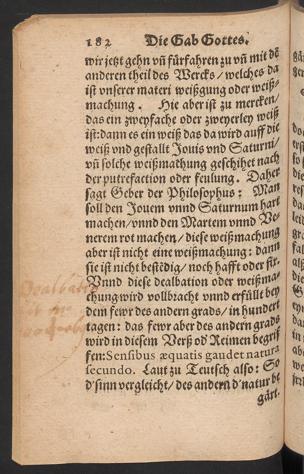 182 Die Gab Gottes.
wir jetzt gehn vñ fürfahren zu vñ mit dẽ
anderen theil des Wercks/ welches da
ist vnserer materi weißgung oder weiß-
machung. Hie aber ist zu mercken/
das ein zweyfache oder zweyerley weiß
ist: dann es ein weiß das da wird auff die
weiß vnd gestallt Jouis vnd Saturni/
vñ solche weißmachung geschihet nach
der putrefaction oder feulung. Daher
sagt Geber der Philosophus: Man
soll den Jouem vnnd Saturnum hart
machen/ vnnd den Martem vnnd Ve-
nerem rot machen/ diese weißmachung
aber ist nicht eine weißmachung: dann
sie ist nicht bestedig/ noch hafft oder fix.
Vnnd diese dealbation oder weißma-
chung wird vollbracht vnnd erfüllt bey
dem fewr des andern grads/ in hundert
tagen: das fewr aber des andern grads
wird in diesem Verß od' Reimen begrif
fen: Sensibus æquatis gaudet natura
secundo. Laut zu Teutsch also: So
d' sinn vergleicht/ des andern d' natur be
gärt.
Dealbatio